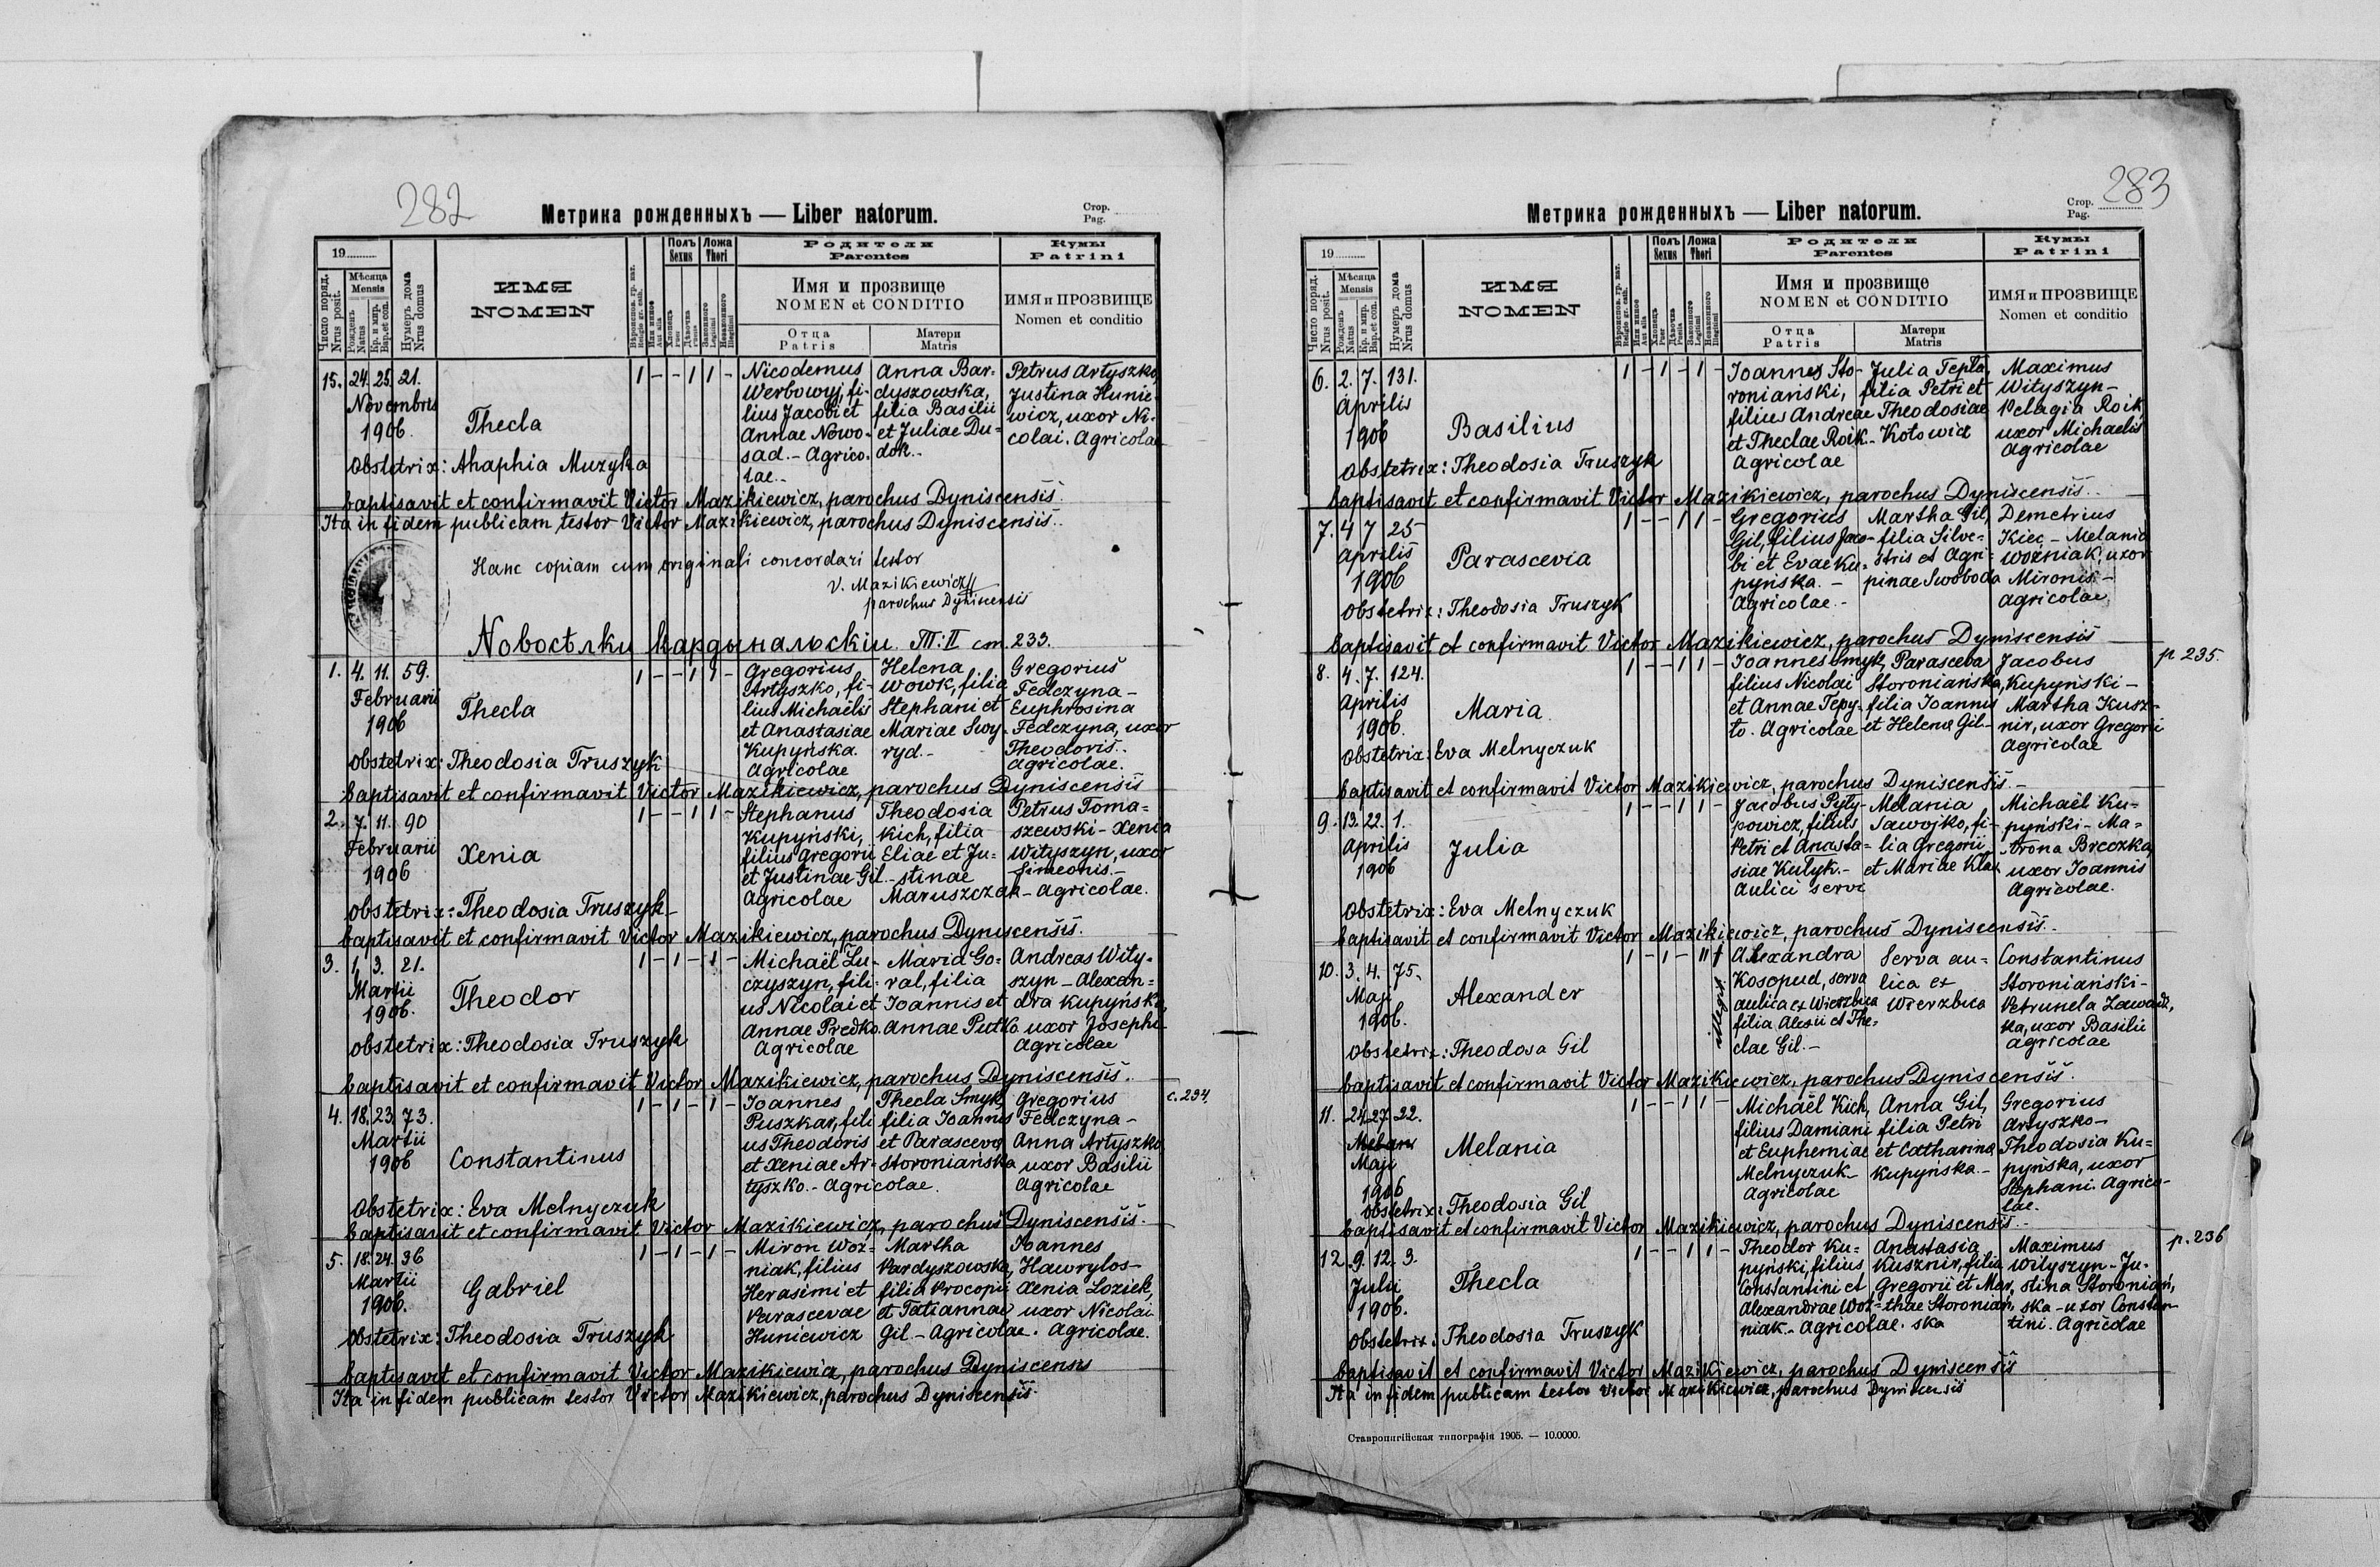 282
Метрика рожденныхъ — Liber natorum.
Стор.
Pag.
19
Число поряд.
Nrus posit.
Мѣсяца
Mensis
Рожденъ
Natus
Кр. и мир.
Bap. et con.
Нумеръ дома
Nrus domus
ИМЯ
NOMEN
Полъ
Sexus
Ложа
Thori
Родители
Parentes
Имя и прозвище
NOMEN et CONDITIO
Отца
Patris
Матери
Matris
Кумы
Patrini
ИМЯ и ПРОЗВИЩЕ
Nomen et conditio
15. 24. 25. 21.
Novembris
1906.
Thecla
1 - - 1 1 -
Nicodemus
Werbowyj, fi-
lius Jacobi et
Annae Nowo-
sad. - Agrico-
lae. -
Anna Bar-
dyszowska,
filia Basilii
et Juliae Du-
dok. -
Petrus Artyszko,
Justina Hunie-
wicz, uxor Ni-
colai. Agricolae
Obstetrix: Ahaphia Muzyka
baptisavit et confirmavit Victor Mazikiewicz, parochus Dyniscensis.
Ita in fidem publicam testor Victor Mazikiewicz, parochus Dyniscensis.
Hanc copiam cum originali concordari testor
V. Mazikiewicz
parochus Dyniscensis
Новосѣлки Кардынальскіи. Т: II ст. 233.
1. 4. 11. 59.
Februarii
1906
Thecla
1 - - 1 1 -
Gregorius
Artyszko, fi-
lius Michaëlis
et Anastasiae
Kupyńska.
Agricolae
Helena
Wowk, filia
Stephani et
Mariae Swy-
ryd. -
Gregorius
Fedczyna -
Euphrosina
Fedczyna, uxor
Theodoris.
Agricolae.
Obstetrix: Theodosia Truszyk
baptisavit et confirmavit Victor Mazikiewicz, parochus Dyniscensis
2. 7. 11. 90
Februarii
1906
Xenia
1 - - 1 1 -
Stephanus
Kupyński,
filius Gregorii
et Justinae Gil. -
Agricolae
Theodosia
Kich, filia
Eliae et Ju-
stinae
Maruszczak
Petrus Toma-
szewski - Xenia
Wityszyn, uxor
Simeonis. -
- Agricolae.
Obstetrix: Theodosia Truszyk
baptisavit et confirmavit Victor Mazikiewicz, parochus Dyniscensis.
3. 1. 3. 21.
Martii
1906.
Theodor
1 - 1 - 1 -
Michaël Lu-
czyszyn, fili-
us Nicolai et
Annae Predko.
Agricolae
Maria Go-
ral, filia
Joannis et
Annae Putko
Andreas Wity-
szyn - Alexan-
dra Kupyńska
uxor Josephi
Agricolae
Obstetrix: Theodosia Truszyk
baptisavit et confirmavit Victor Mazikiewicz, parochus Dyniscensis.
с. 234.
4. 18. 23. 73.
Martii
1906
Constantinus
1 - 1 - 1 -
Joannes
Puszkar, fili-
us Theodoris
et Xeniae Ar-
tyszko. - Agricolae.
Thecla Smyk
filia Joannis
et Parascevae
Storoniańska
Gregorius
Fedczyna -
Anna Artyszko
uxor Basilii
Agricolae
Obstetrix: Eva Melnyczuk
baptisavit et confirmavit Victor Mazikiewicz, parochus Dyniscensis.
5. 18. 24. 36
Martii
1906.
Gabriel
1 - 1 - 1 -
Miron Woź-
niak, filius
Herasimi et
Parascevae
Huniewicz
Martha
Bardyszowska,
filia Procopii
et Tatiannae
Gil - Agricolae.
Joannes
Hawrylos -
Xenia Loziek,
uxor Nicolai
Agricolae.
Obstetrix: Theodosia Truszyk
baptisavit et confirmavit Victor Mazikiewicz, parochus Dyniscensis
Ita in fidem publicam testor Victor Mazikiewicz, parochus Dyniscensis.
283
Метрика рожденныхъ — Liber natorum.
Стор.
Pag.
19
Число поряд.
Nrus posit.
Мѣсяца
Mensis
Рожденъ
Natus
Кр. и мир.
Bap. et con.
Нумеръ дома
Nrus domus
ИМЯ
NOMEN
Полъ
Sexus
Ложа
Thori
Родители
Parentes
Имя и прозвище
NOMEN et CONDITIO
Отца
Patris
Матери
Matris
Кумы
Patrini
ИМЯ и ПРОЗВИЩЕ
Nomen et conditio
6. 2. 7. 131.
Aprilis
1906
Basilius
1 - 1 - 1 -
Joannes Sto-
roniański,
filius Andreae
et Theclae Roik. -
Agricolae
Julia Tepla,
filia Petri et
Theodosiae
Kotowicz
Maximus
Wityszyn -
Pelagia Roik,
uxor Michaelis
Agricolae
Obstetrix: Theodosia Truszyk
baptisavit et confirmavit Victor Mazikiewicz, parochus Dyniscensis.
7. 4 7 25
Aprilis
1906
Parascevia
1 - - 1 1 -
Gregorius
Gil, filius Jaco-
bi et Evae Ku-
pyńska. -
Agricolae. -
Martha Gil,
filia Silve-
stris et Agri-
pinae Swoboda
Demetrius
Kiec - Melania
Woźniak, uxor
Mironis -
Agricolae
Obstetrix: Theodosia Truszyk
baptisavit et confirmavit Victor Mazikiewicz, parochus Dyniscensis
р 235.
8. 4. 7. 124.
Aprilis
1906.
Maria
1 - - 1 1 -
Joannes Smyk,
filius Nicolai
et Annae Tepy-
to. Agricolae
Parasceva
Storoniańska,
filia Joannis
et Helena Gil -
Jacobus
Kupyński -
Martha Kusz-
nir, uxor Gregorii
Agricolae
Obstetrix: Eva Melnyczuk
baptisavit et confirmavit Victor Mazikiewicz, parochus Dyniscensis. -
9. 13. 22. 1.
Aprilis
1906
Julia
1 - - 1 1 -
Jacobus Pyty-
powicz, filius
Petri et Anasta-
siae Kulyk. -
Aulici servi
Melania
Sawojko, fi-
lia Gregorii
et Mariae Klak
Michaël Ku-
pyński - Ma-
trona Breczka,
uxor Joannis
Agricolae.
Obstetrix: Eva Melnyczuk
baptisavit et confirmavit Victor Mazikiewicz, parochus Dyniscensis.
10. 3. 4. 75.
Maji
1906.
Alexander
1 - 1 -
illegit.
Alexandra
Kosopud, serva
aulica ex Wierzbica
filia Alexii et The-
clae Gil. -
Serva au-
lica ex
Wierzbica
Constantinus
Storoniański -
Petrunela Zawadz-
ka, uxor Basilii
Agricolae
Obstetrix: Theodosa Gil
baptisavit et confirmavit Victor Mazikiewicz, parochus Dyniscensis.
11. 24. 27. 22.
Maji
1906
Melania
1 - - 1 1 -
Michaël Kich,
filius Damiani
et Euphemiae
Melnyczuk -
Agricolae
Anna Gil,
filia Petri
et Catharina
Kupyńska. -
Gregorius
Artyszko -
Theodosia Ku-
pyńska, uxor
Stephani. Agrico-
lae.
Obstetrix: Theodosia Gil
baptisavit et confirmavit Victor Mazikiewicz, parochus Dyniscensis.
р. 236
12. 9. 12. 3.
Julii
1906.
Thecla
1 - - 1 1 -
Theodor Ku-
pyński, filius
Constantini et
Alexandrae Woź-
niak. - Agricolae.
Anastasia
Kusznir, filia
Gregorii et Mar-
thae Storoniań-
ska
Maximus
Wityszyn - Ju-
stina Storoniań-
ska - uxor Constan-
tini. Agricolae
Obstetrix: Theodosia Truszyk
baptisavit et confirmavit Victor Mazikiewicz, parochus Dyniscensis
Ita in fidem publicam testor Victor Mazikiewicz, parochus Dyniscensis
Ставропигійская типографія 1905. — 10.0000.